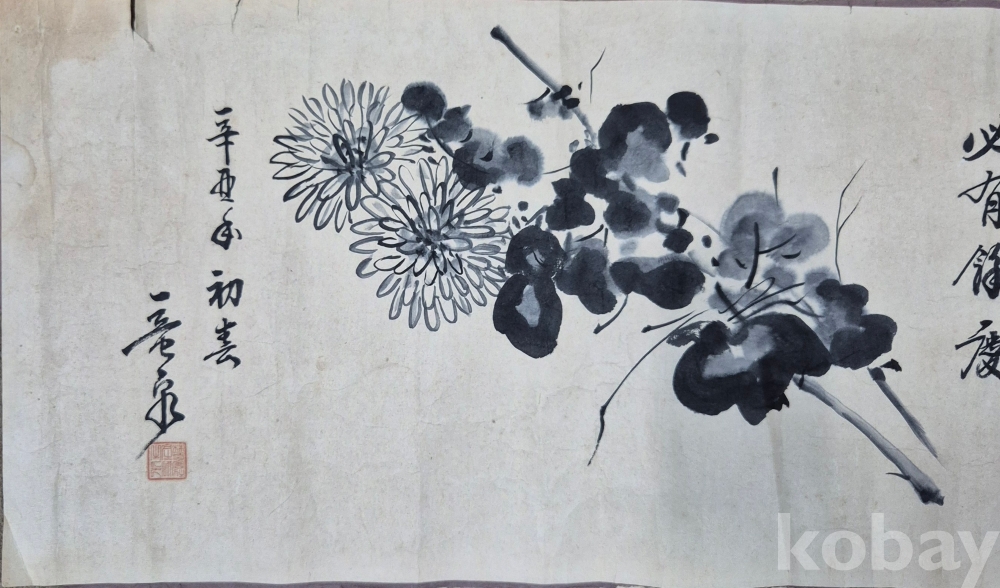 必有餘慶
辛酉年初春
kobay